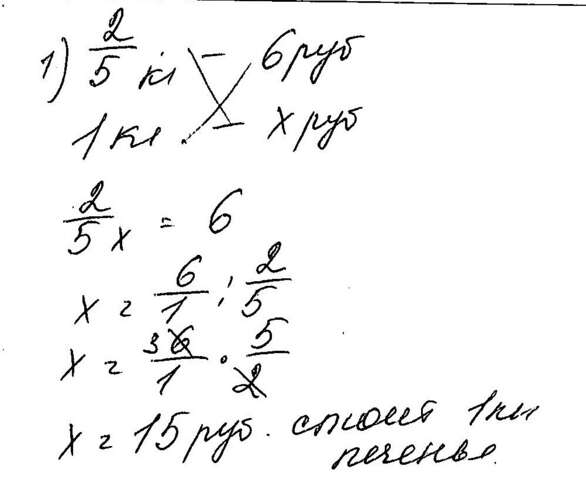 1) 2/5 кг – 6 руб
1 кг – x руб
2/5 x = 6
x = 6/1 : 2/5
x = 3 6/1 · 5/2
x = 15 руб. стоит 1 кг
печенья.